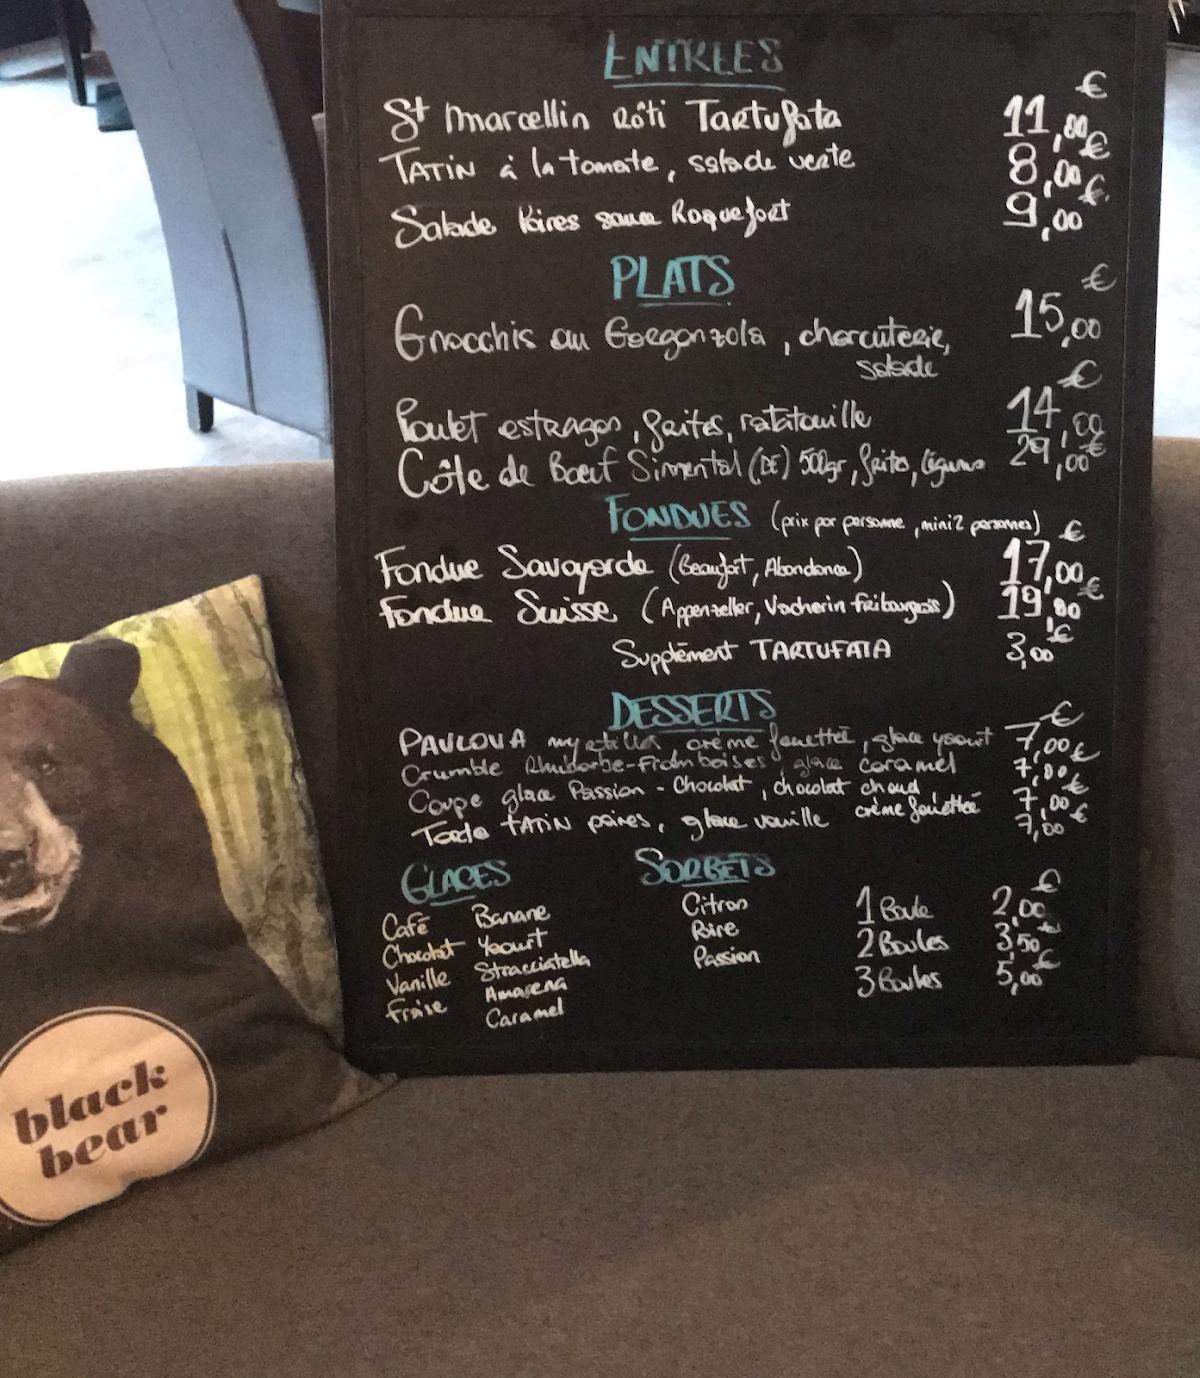 ENTREES
€
St Marcellin Rôti Tartufata 11,00
TATIN à la tomate, salade verte 8,00 €
Salade Poires sauce Roquefort 9,00 €
PLATS
€
Gnocchis au Gorgonzola, charcuterie, 15,00
salade
€
Poulet estragon, frites, ratatouille 14,00
Côte de Boeuf Simental (DE) 500gr, frites, légumes 29,00 €
FONDUES (prix par personne, mini 2 personnes) €
Fondue Savoyarde (Beaufort, Abondance) 17,00
Fondue Suisse (Appenzeller, Vacherin fribourgeois) 19,00 €
Supplément TARTUFATA 3,00 €
DESSERTS
€
PAVLOVA myrtilles, crème fouettée, glace yaourt 7,00
Crumble Rhubarbe-Framboises, glace caramel 7,00 €
Coupe glace Passion - Chocolat, chocolat chaud 7,00 €
crème fouettée
Tarte TATIN poires, glace vanille 7,00 €
GLACES SORBETS
€
Café Banane Citron 1 Boule 2,00
Chocolat Yaourt Poire 2 Boules 3,50 €
Vanille Stracciatella Passion 3 Boules 5,00 €
Fraise Amarena
Caramel
black
bear